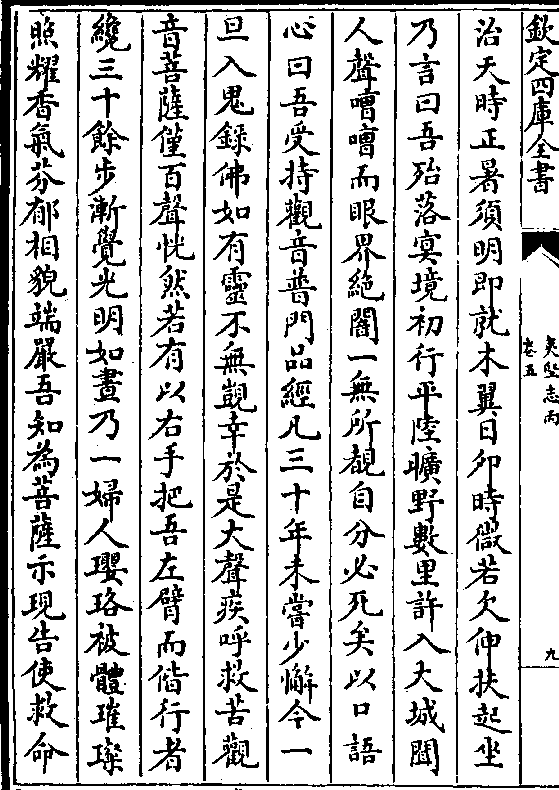 欽定四庫全書
夷堅志丙
卷五
九
治天時正暑須明即就木翼日卯時微若欠伸扶起坐
乃言曰吾殆落冥境初行平陸曠野數里許入大城闤
人聲嘈嘈而眼界絶闇一無所覩自分必死矣以口語
心曰吾受持觀音普門品經凡三十年未嘗少懈今一
旦入鬼録佛如有靈不無覬幸於是大聲疾呼救苦觀
音菩薩僅百聲恍然若有以右手把吾左臂而偕行者
纔三十餘步漸覺光明如晝乃一婦人瓔珞被體璀璨
照耀香氣芬郁相貌端嚴吾知為菩薩示現告使救命